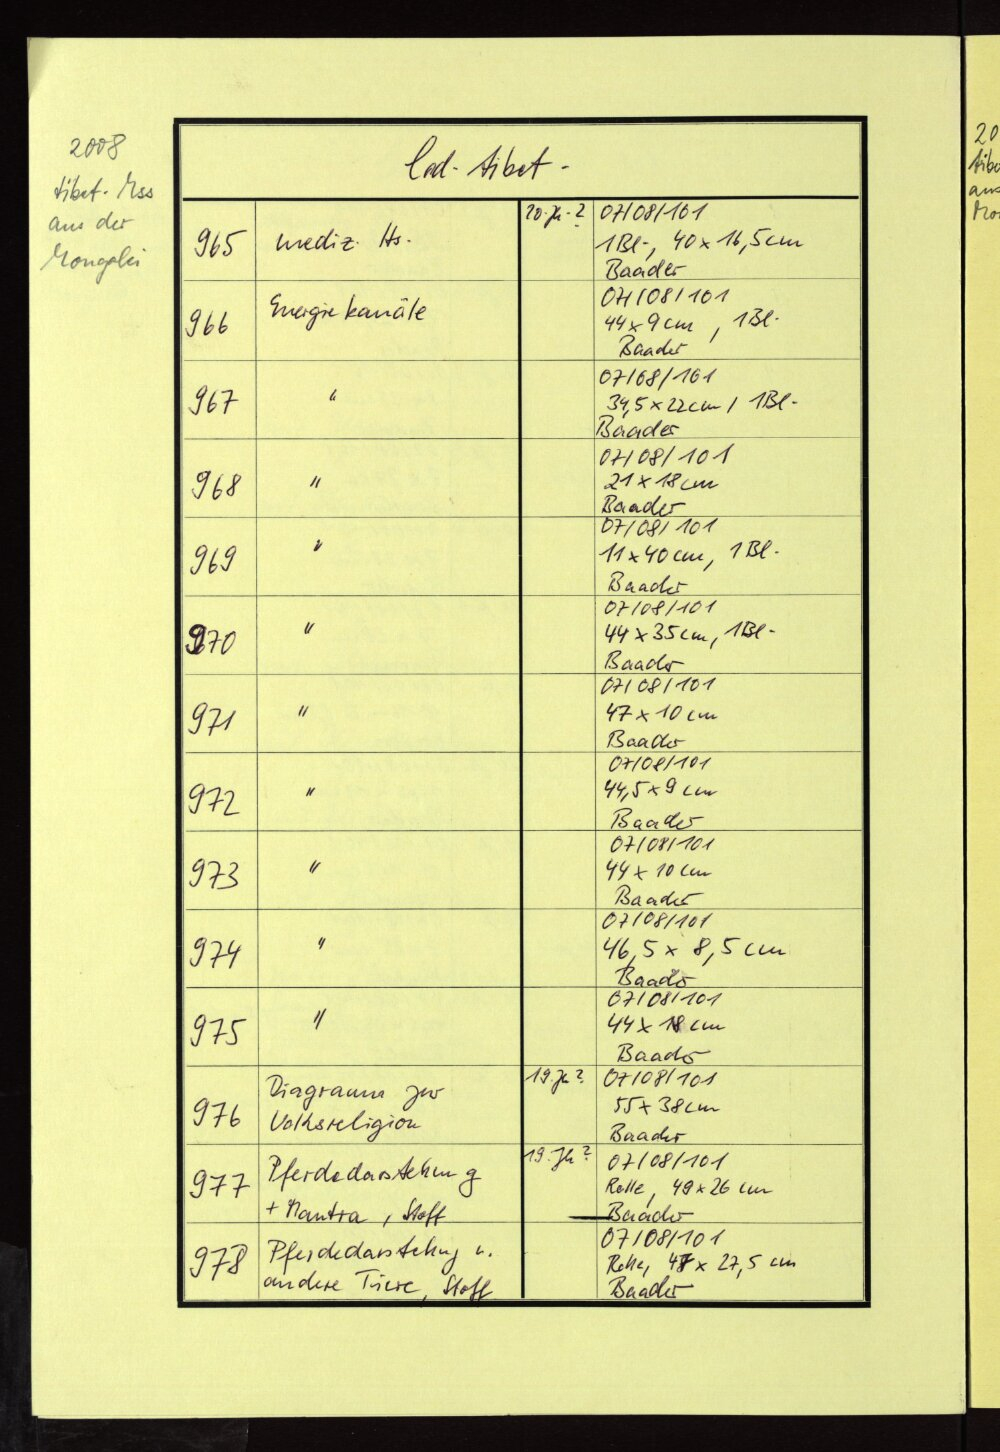 2008
tibet. Hss
aus der
Mongolei
Cod. tibet.
965 mediz. Hs. 20. Jh.? 07/08/101
1 Bl., 40 x 16,5 cm
Baader
966 Energiekanäle 07/08/101
44 x 9 cm, 1 Bl.
Baader
967 " 07/08/101
34,5 x 22 cm, 1 Bl.
Baader
968 " 07/08/101
21 x 18 cm
Baader
969 " 07/08/101
11 x 40 cm, 1 Bl.
Baader
970 " 07/08/101
44 x 35 cm, 1 Bl.
Baader
971 " 07/08/101
47 x 10 cm
Baader
972 " 07/08/101
44,5 x 9 cm
Baader
973 " 07/08/101
44 x 10 cm
Baader
974 " 07/08/101
46,5 x 8,5 cm
Baader
975 " 07/08/101
44 x 18 cm
Baader
976 Diagramm zur 19. Jh.? 07/08/101
Volksreligion 55 x 38 cm
Baader
977 Pferdedarstellung 19. Jh.? 07/08/101
+ Mantra, Stoff Rolle, 49 x 26 cm
Baader
978 Pferdedarstellung u. 07/08/101
andere Tiere, Stoff Rolle, 47 x 27,5 cm
Baader